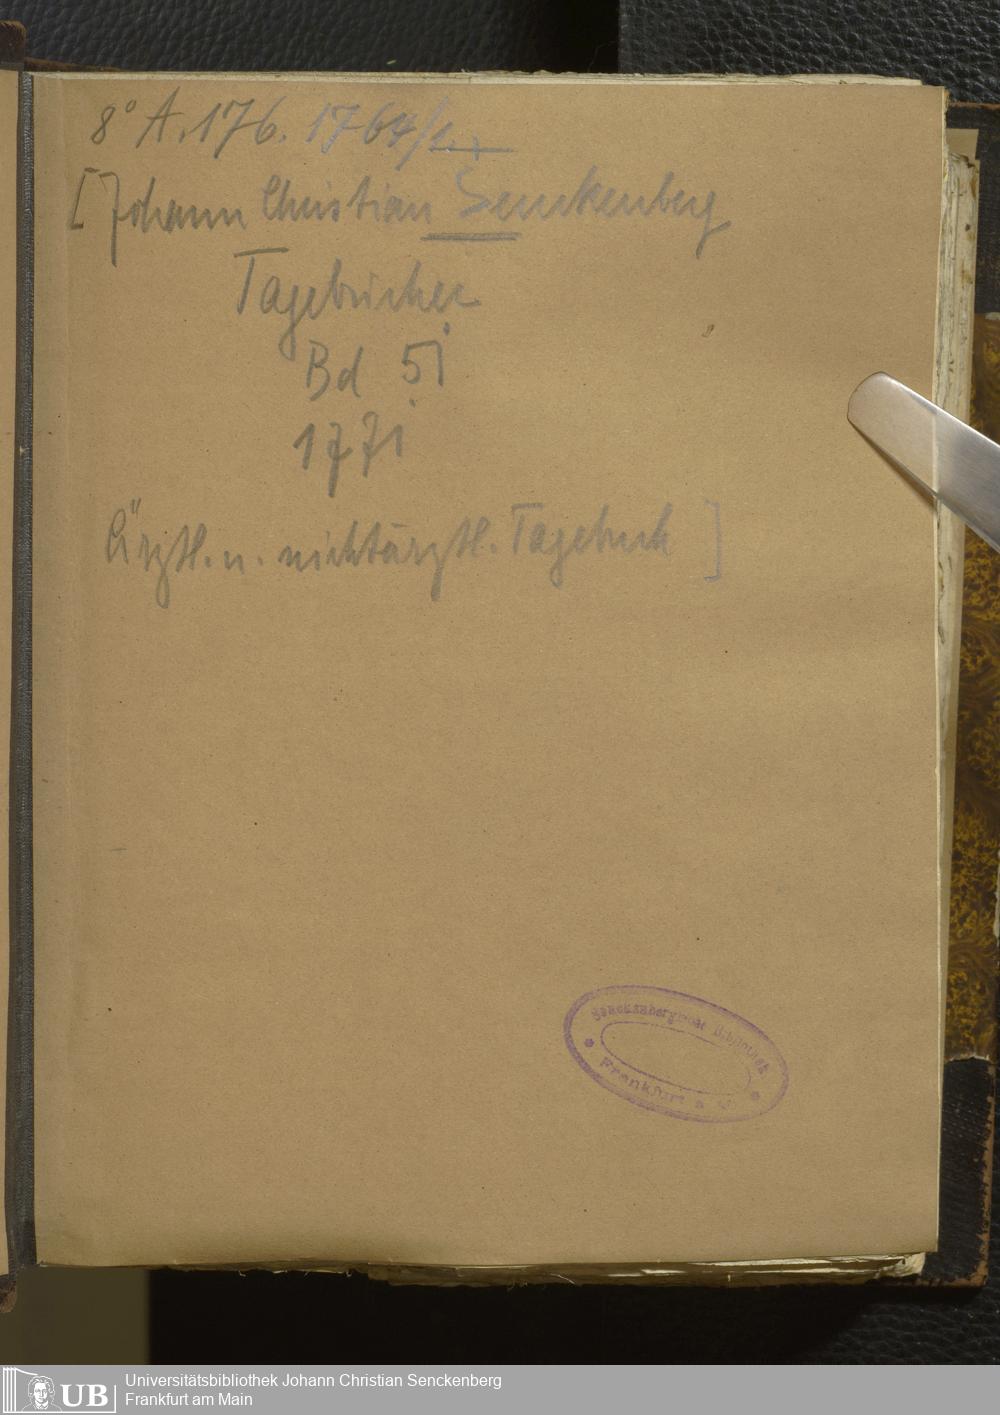 8° A. 176. 1764/1.
[Johann Christian Senckenberg
Tagebücher
Bd 51
1771
Ärztl. u. nichtärztl. Tagebuch ]
Senckenbergische Bibliothek
Frankfurt a. M.
UB
Universitätsbibliothek Johann Christian Senckenberg
Frankfurt am Main